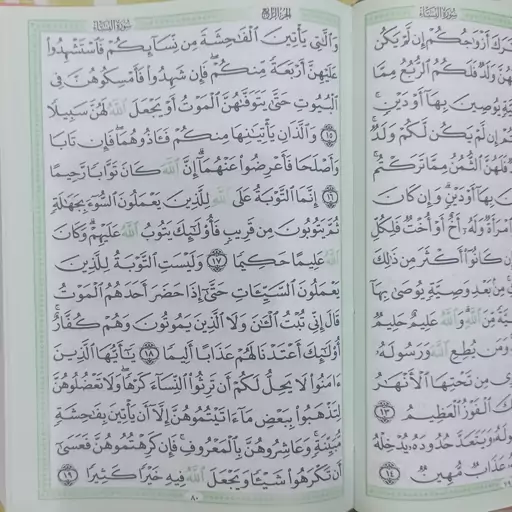 سُورَةُ النِّسَاءِ
تَرَكَ أَزْوَٰجُكُمْ إِن لَّمْ يَكُن
هُنَّ وَلَدٌ فَلَكُمُ ٱلرُّبُعُ مِمَّا
يَّةٍ يُوصِينَ بِهَآ أَوْ دَيْنٍ ۚ
تُمْ إِن لَّمْ يَكُن لَّكُمْ وَلَدٌ ۚ
فَلَهُنَّ ٱلثُّمُنُ مِمَّا تَرَكْتُم ۚ
نَ بِهَآ أَوْ دَيْنٍ ۗ وَإِن كَانَ
ٱمْرَأَةٌ وَلَهُۥٓ أَخٌ أَوْ أُخْتٌ فَلِكُلِّ
ن كَانُوٓا۟ أَكْثَرَ مِن ذَٰلِكَ
مِنۢ بَعْدِ وَصِيَّةٍ يُوصَىٰ بِهَآ
يَّةً مِّنَ ٱللَّهِ ۗ وَٱللَّهُ عَلِيمٌ حَلِيمٌ
وَمَن يُطِعِ ٱللَّهَ وَرَسُولَهُۥ
رِى مِن تَحْتِهَا ٱلْأَنْهَٰرُ
كَ ٱلْفَوْزُ ٱلْعَظِيمُ ١٣
ولَهُۥ وَيَتَعَدَّ حُدُودَهُۥ يُدْخِلْهُ
عَذَابٌ مُّهِينٌ ١٤
الجُزْءُ الرَّابِعُ سُورَةُ النِّسَاءِ
وَٱلَّٰتِى يَأْتِينَ ٱلْفَٰحِشَةَ مِن نِّسَآئِكُمْ فَٱسْتَشْهِدُوا۟
عَلَيْهِنَّ أَرْبَعَةً مِّنكُمْ ۖ فَإِن شَهِدُوا۟ فَأَمْسِكُوهُنَّ فِى
ٱلْبُيُوتِ حَتَّىٰ يَتَوَفَّىٰهُنَّ ٱلْمَوْتُ أَوْ يَجْعَلَ ٱللَّهُ لَهُنَّ سَبِيلًا
١٥ وَٱلَّذَانِ يَأْتِيَٰنِهَا مِنكُمْ فَـَٔاذُوهُمَا ۖ فَإِن تَابَا
وَأَصْلَحَا فَأَعْرِضُوا۟ عَنْهُمَآ ۗ إِنَّ ٱللَّهَ كَانَ تَوَّابًا رَّحِيمًا
١٦ إِنَّمَا ٱلتَّوْبَةُ عَلَى ٱللَّهِ لِلَّذِينَ يَعْمَلُونَ ٱلسُّوٓءَ بِجَهَٰلَةٍ
ثُمَّ يَتُوبُونَ مِن قَرِيبٍ فَأُو۟لَٰٓئِكَ يَتُوبُ ٱللَّهُ عَلَيْهِمْ ۗ وَكَانَ
ٱللَّهُ عَلِيمًا حَكِيمًا ١٧ وَلَيْسَتِ ٱلتَّوْبَةُ لِلَّذِينَ
يَعْمَلُونَ ٱلسَّيِّـَٔاتِ حَتَّىٰٓ إِذَا حَضَرَ أَحَدَهُمُ ٱلْمَوْتُ
قَالَ إِنِّى تُبْتُ ٱلْـَٰٔنَ وَلَا ٱلَّذِينَ يَمُوتُونَ وَهُمْ كُفَّارٌ ۚ
أُو۟لَٰٓئِكَ أَعْتَدْنَا لَهُمْ عَذَابًا أَلِيمًا ١٨ يَٰٓأَيُّهَا ٱلَّذِينَ
ءَامَنُوا۟ لَا يَحِلُّ لَكُمْ أَن تَرِثُوا۟ ٱلنِّسَآءَ كَرْهًا ۖ وَلَا تَعْضُلُوهُنَّ
لِتَذْهَبُوا۟ بِبَعْضِ مَآ ءَاتَيْتُمُوهُنَّ إِلَّآ أَن يَأْتِينَ بِفَٰحِشَةٍ
مُّبَيِّنَةٍ ۚ وَعَاشِرُوهُنَّ بِٱلْمَعْرُوفِ ۚ فَإِن كَرِهْتُمُوهُنَّ فَعَسَىٰٓ
أَن تَكْرَهُوا۟ شَيْـًٔا وَيَجْعَلَ ٱللَّهُ فِيهِ خَيْرًا كَثِيرًا ١٩
٨٠